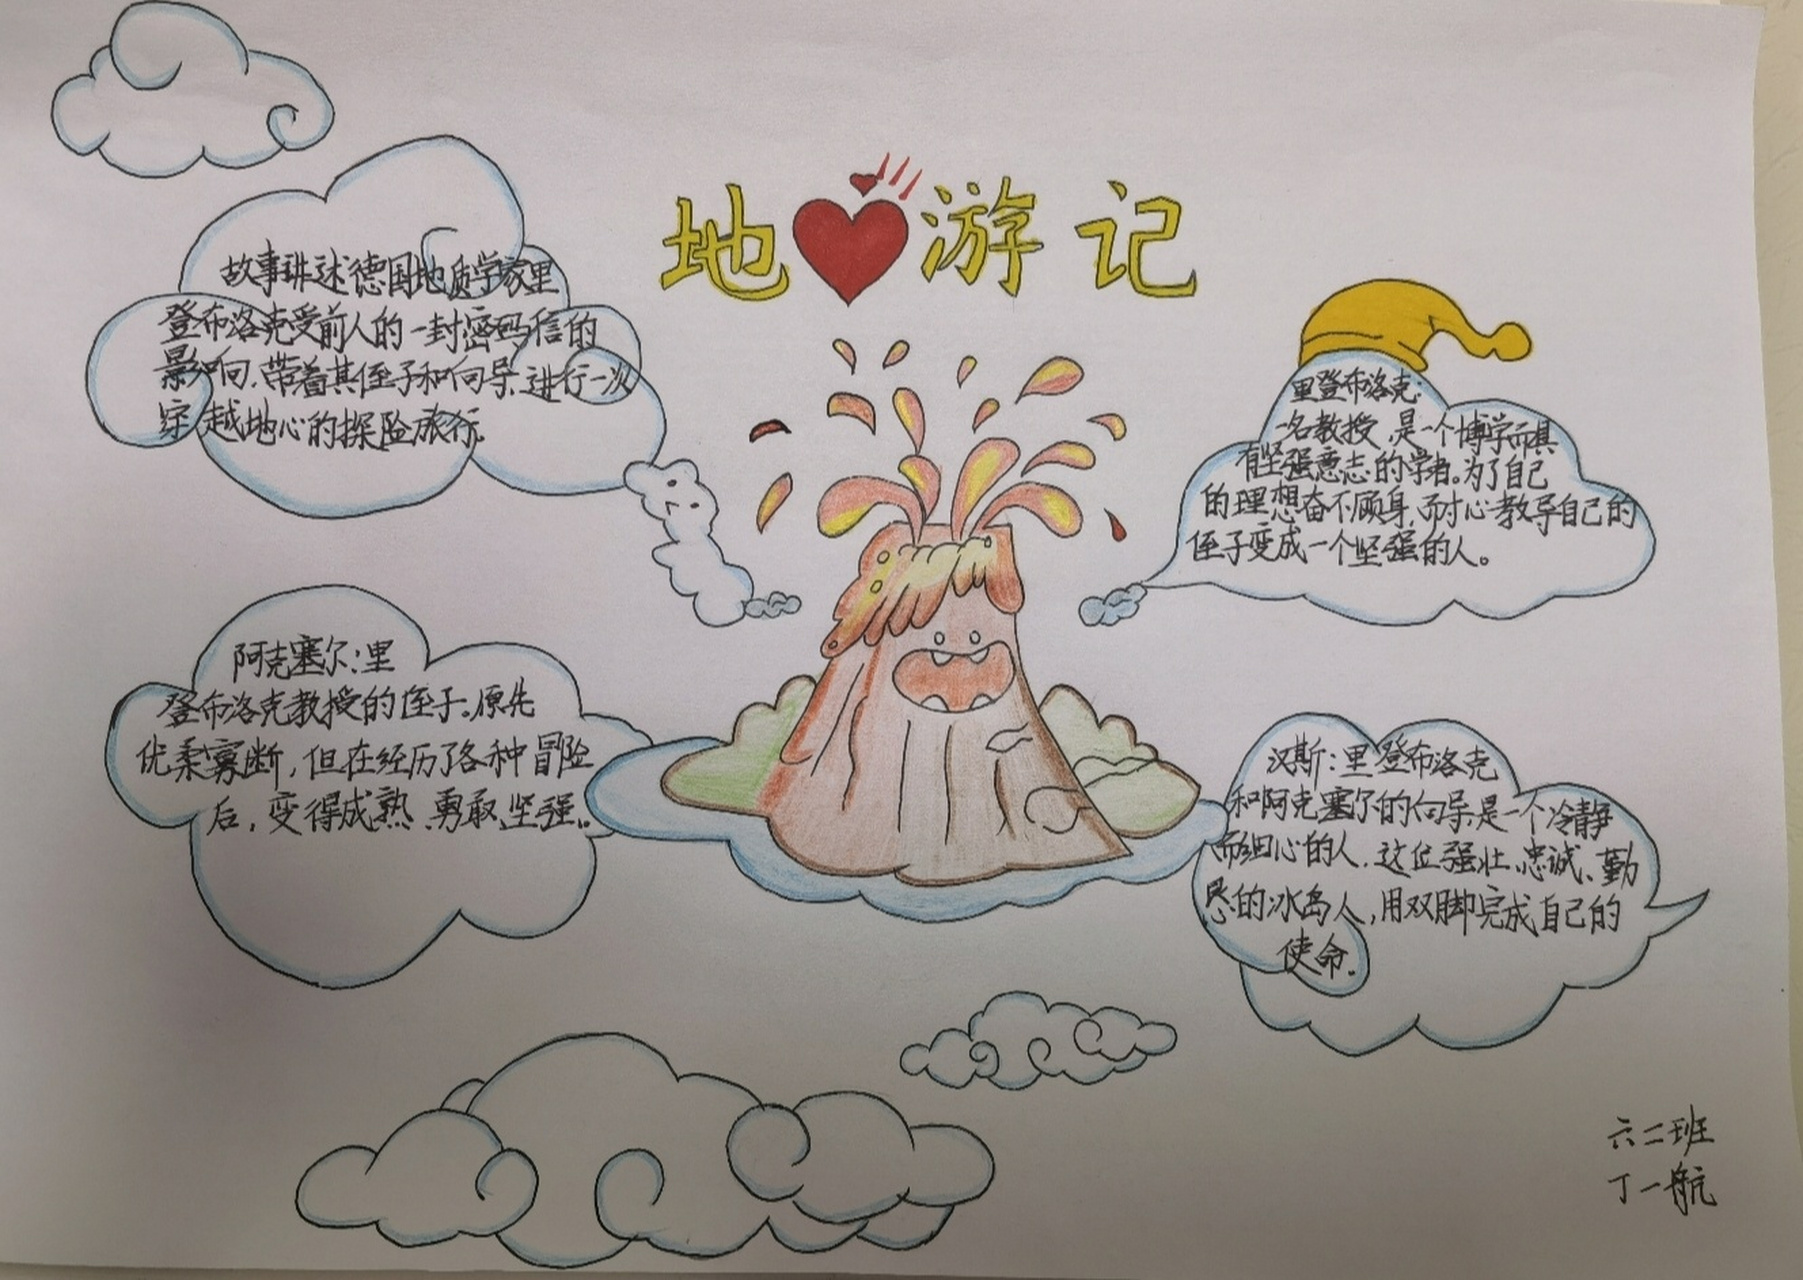 地❤游记
故事讲述德国地质学家里
登布洛克受前人的一封密码信的
影响,带着其侄子和向导,进行一次
穿越地心的探险旅行。
里登布洛克:
一名教授,是一个博学而具
有坚强意志的学者。为了自己
的理想奋不顾身,而耐心教导自己的
侄子变成一个坚强的人。
阿克塞尔:里
登布洛克教授的侄子。原先
优柔寡断,但在经历了各种冒险
后,变得成熟、勇敢、坚强。
汉斯:里登布洛克
和阿克塞尔的向导,是一个冷静
而细心的人.这位强壮、忠诚、勤
恳的冰岛人,用双脚完成自己的
使命.
六二班
丁一航